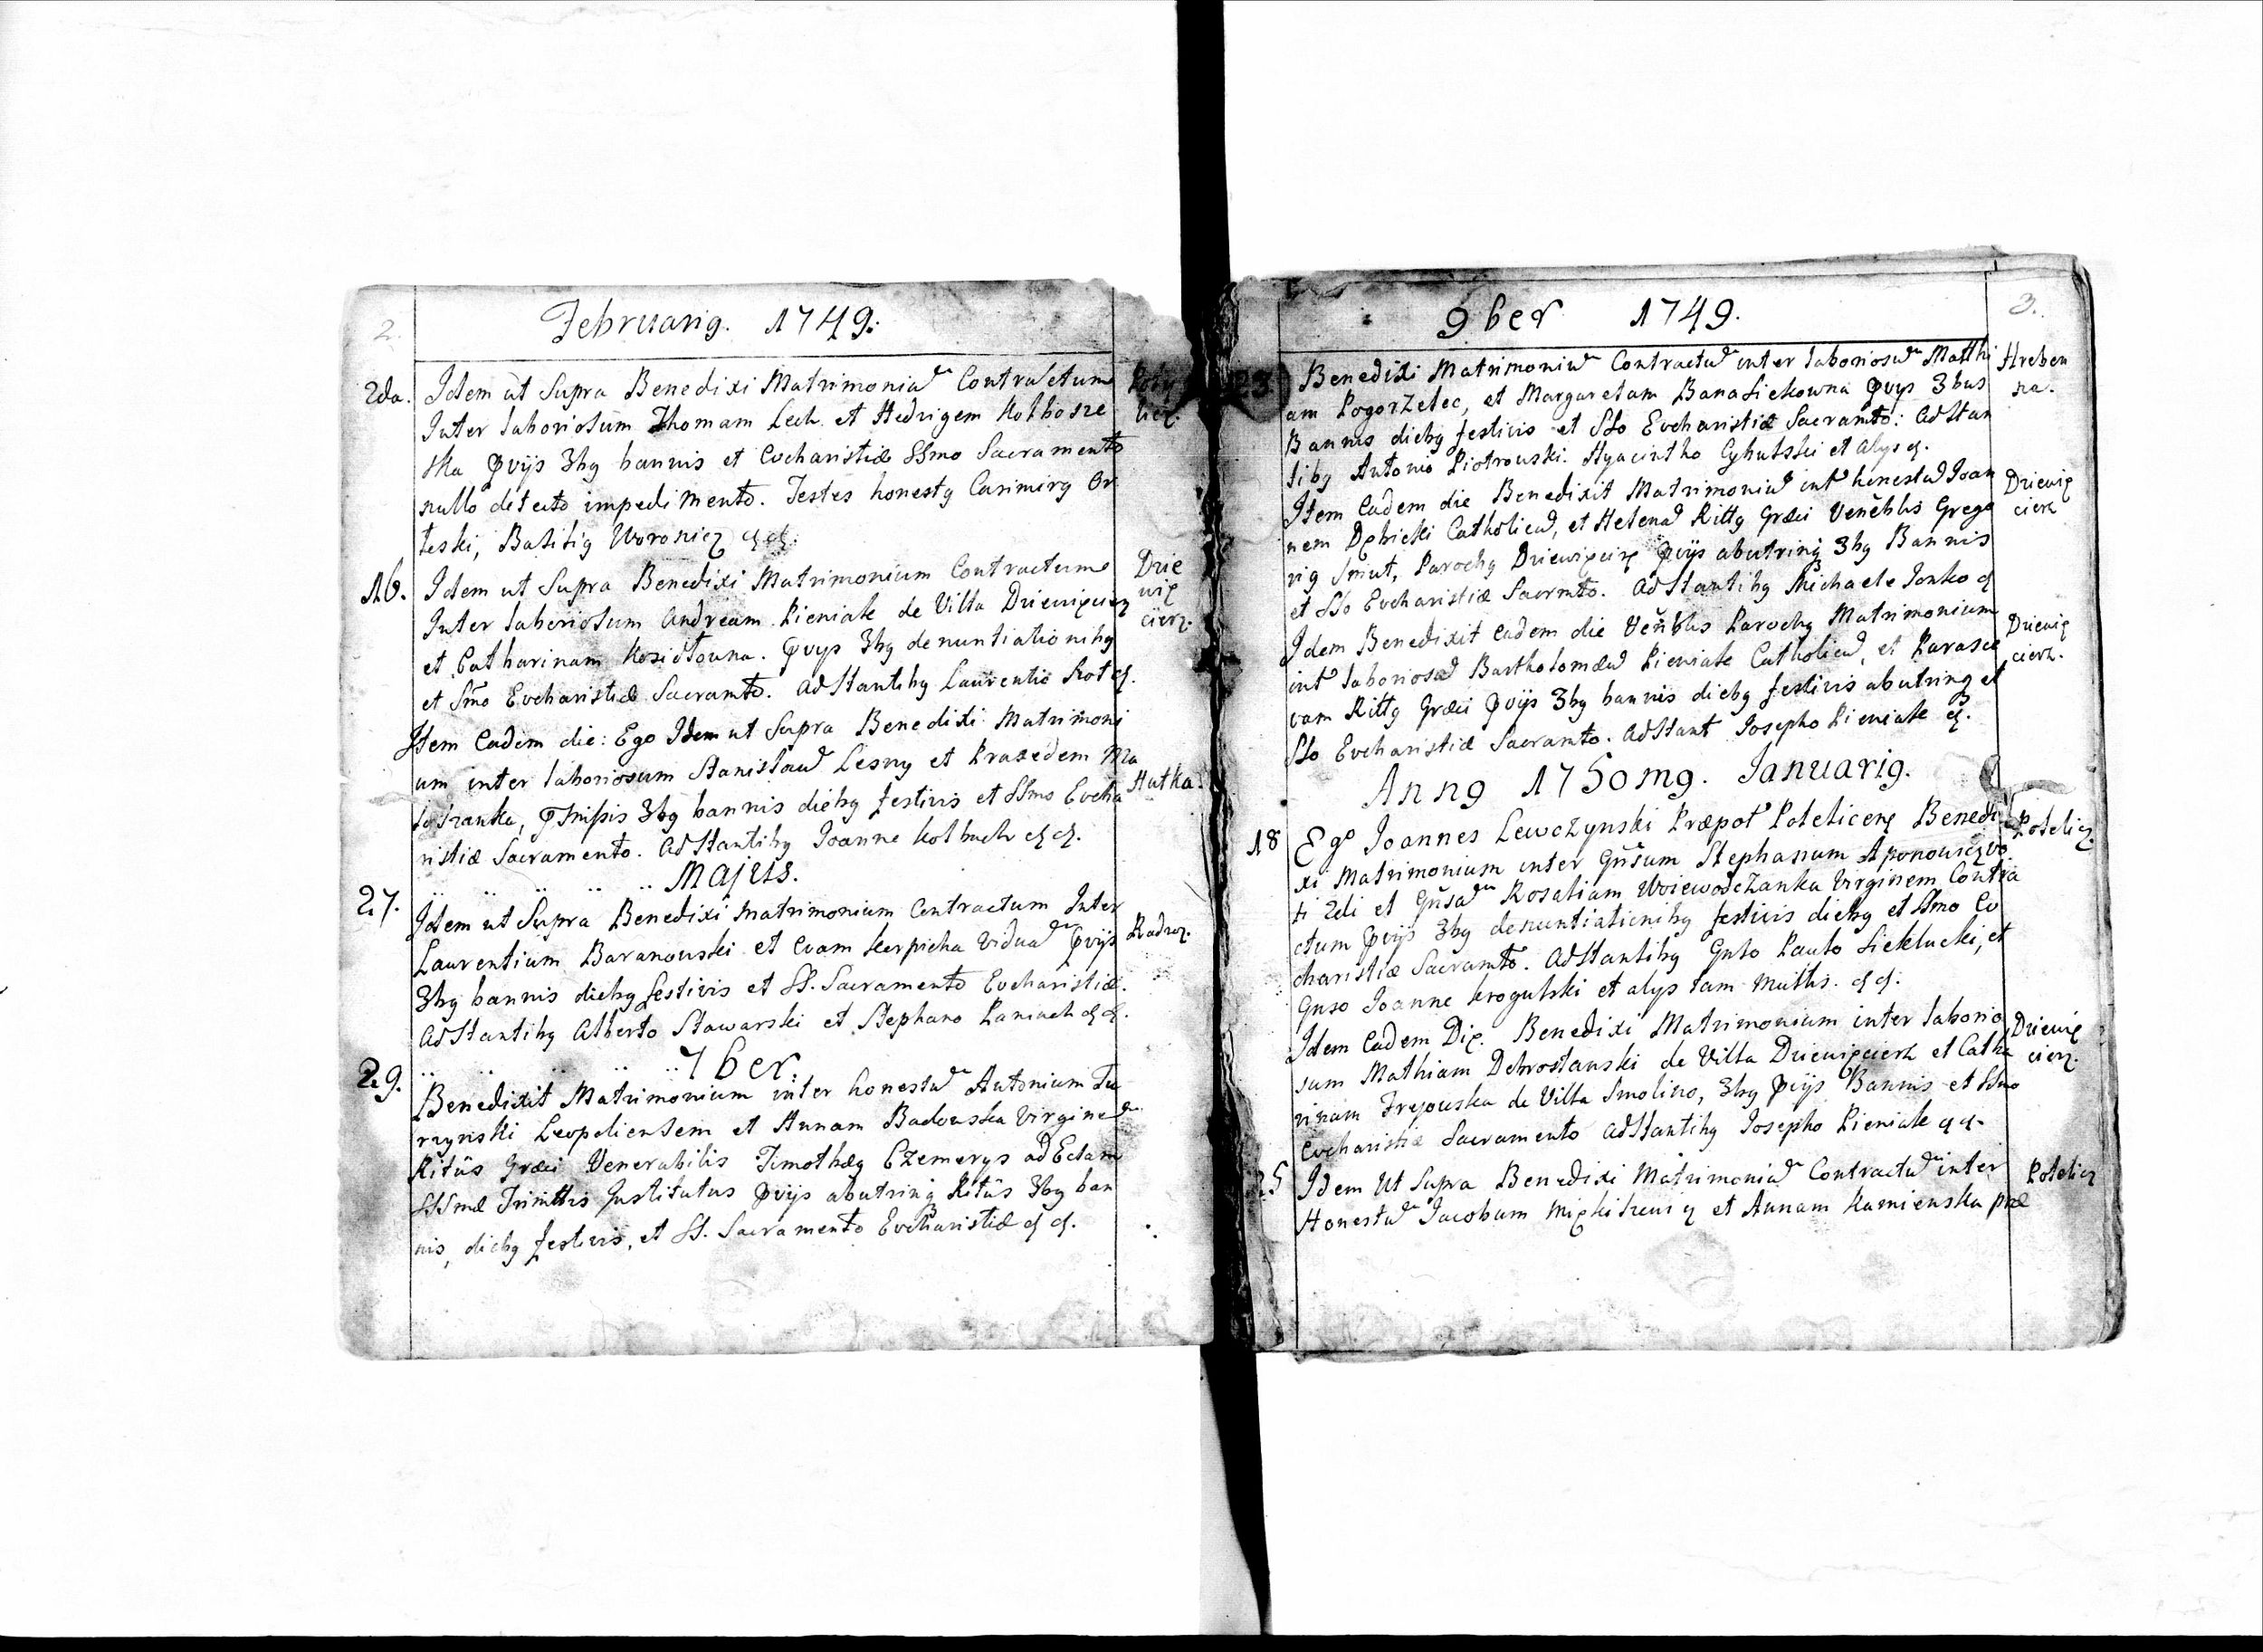 2.
Februarig. 1749.
2da. Idem ut Supra Benedixi Matrimoniũ Contractum
Inter laboriosum Thomam Lech et Hedvigem Kolbosze
ska pvijs 3bg bannis et Eucharistiæ SSmo Sacramento
nullo detecto impedimento. Testes honestg Casimirg Or
teski, Basilig Woronicz &&.
16. Idem ut Supra Benedixi Matrimonium Contractum
Drie
Inter laboriosum Andream Pieniak de Villa Driewięcierz
wię
et Catharinam Kosiołowna. pvys 3bg denuntiationibg
cierz.
et Smo Eucharistiæ Sacramto. AdStantibg Laurentio Kot &.
Item Eadem die: Ego Idem ut Supra Benedixi Matrimoni
um inter laboriosum Stanisław Lesny et Praxedem Ma
Hutka.
pmissis 3bg bannis diebg festivis et SSmo Eucha
ristiæ Sacramento. AdStantibg Joanne Kolbuch &&.
Majus.
27. Idem ut Supra Benedixi Matrimonium Contractum Inter
Laurentium Baranowski et Evam Karpicha Viduã pvijs
Radruz.
3bg bannis diebg festivis et SS. Sacramento Eucharistiæ.
AdStantibg Alberto Stawarski et Stephano Paniach &&.
7ber.
29. Benedixit Matrimonium inter honestũ Antonium Tu
rzynski Leopoliensem et Annam Badowska Virginẽ
Ritûs Græci Venerabilis Timothæg Czemerys ad Eclam
SSSmæ Trinittis Institutus pvijs abutrinq Ritûs 3bg ban
nis, diebg festivis, et SS. Sacramento Eucharistiæ &&.
3.
9ber 1749.
23 Benedixi Matrimoniũ Contractũ inter laboriosũ Matthi
Hreben
am Pogorzelec, et Margaretam Banasiekowna pvys 3bus
na.
Bannis diebg festivis et SSo Eucharistiæ Sacramto: AdStan
tibg Antonio Piotrowski. Hyacintho Cybulski et alys &.
Item Eadem die Benedixit Matrimoniũ intr honestũ Joan
Driewię
nem Dębicki Catholicũ, et Helenã Rittg Græci Venẽblis Grego
cierz
rig Smut, Parochg Driewięcirz pvijs abutrinq 3bg Bannis
et SSo Eucharistiæ Sacrmto. AdStantibg Michaele Jonko &
Idem Benedixit Eadem die Venẽblis Parochg Matrimonium
Driewię
intr laboriosũ Bartholomæũ Pieniak Catholicũ, et Parasce
cierz.
vam Rittg Græci pvijs 3bg bannis diebg festivis abutrinq et
SSo Eucharistiæ Sacramto. AdStant Josepho Pieniak &.
Anng 1750mg. Januarig.
18 Ego Joannes Lewczynski Præpot Poteliceng Benedi
Potelicz.
xi Matrimonium inter Gñsum Stephanum
et Gñsã Rosaliam Woiewodczanka Virginem Contra
ctum pvijs 3bg denuntiationibg festivis diebg et SSmo Eu
charistiæ Sacramto. AdStantibg Gnso Paulo Sieklucki, et
Gnso Joanne Krogulski et alys tam multis. &&.
Idem Eadem Die. Benedixi Matrimonium inter laborio
Driewię
sum Mathiam Dobrostanski de Villa Driewięcierz et Catha
cierz.
rinam Freyowska de Villa Smolino, 3bg pvijs Bannis et SSmo
Eucharistiæ Sacramento AdStantibg Josepho Pieniak &&.
25 Idem Ut Supra Benedixi Matrimoniũ Contractũ inter
Potelicz
Honestũ Jacobum Miękiszewicz et Annam Kamienska præ